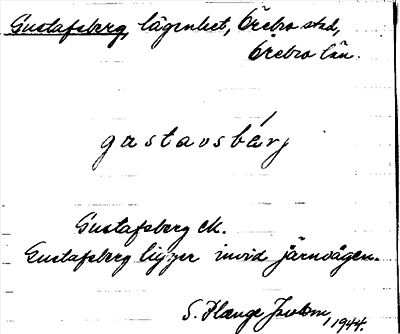 Gustafsberg, lägenhet, Örebro stad,
Örebro län.
gustavsbärj
Gustafsberg EK.
Gustafsberg ligger invid järnvägen.
S. Hænge 1944.